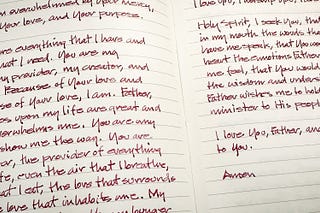 overwhelmed by your mercy,
your love, and your purpose.
are everything that I have and
what I need. You are my
provider, my creator, and
Because of Your love and
of Your love, I am. Father,
upon my life are great and
overwhelms me. You are my
show me the way. You are
the provider of everything
even the air that I breathe,
that I eat, the love that surrounds
love that inhabits me. My
I love You, I worship You, I
Holy Spirit, I seek You, that
in my mouth the words that
have me speak, that You would
heart the emotions Father
me feel, that You would
the wisdom and
Father wishes me to
minister to His people
I love You, Father, and
to You.
Amen